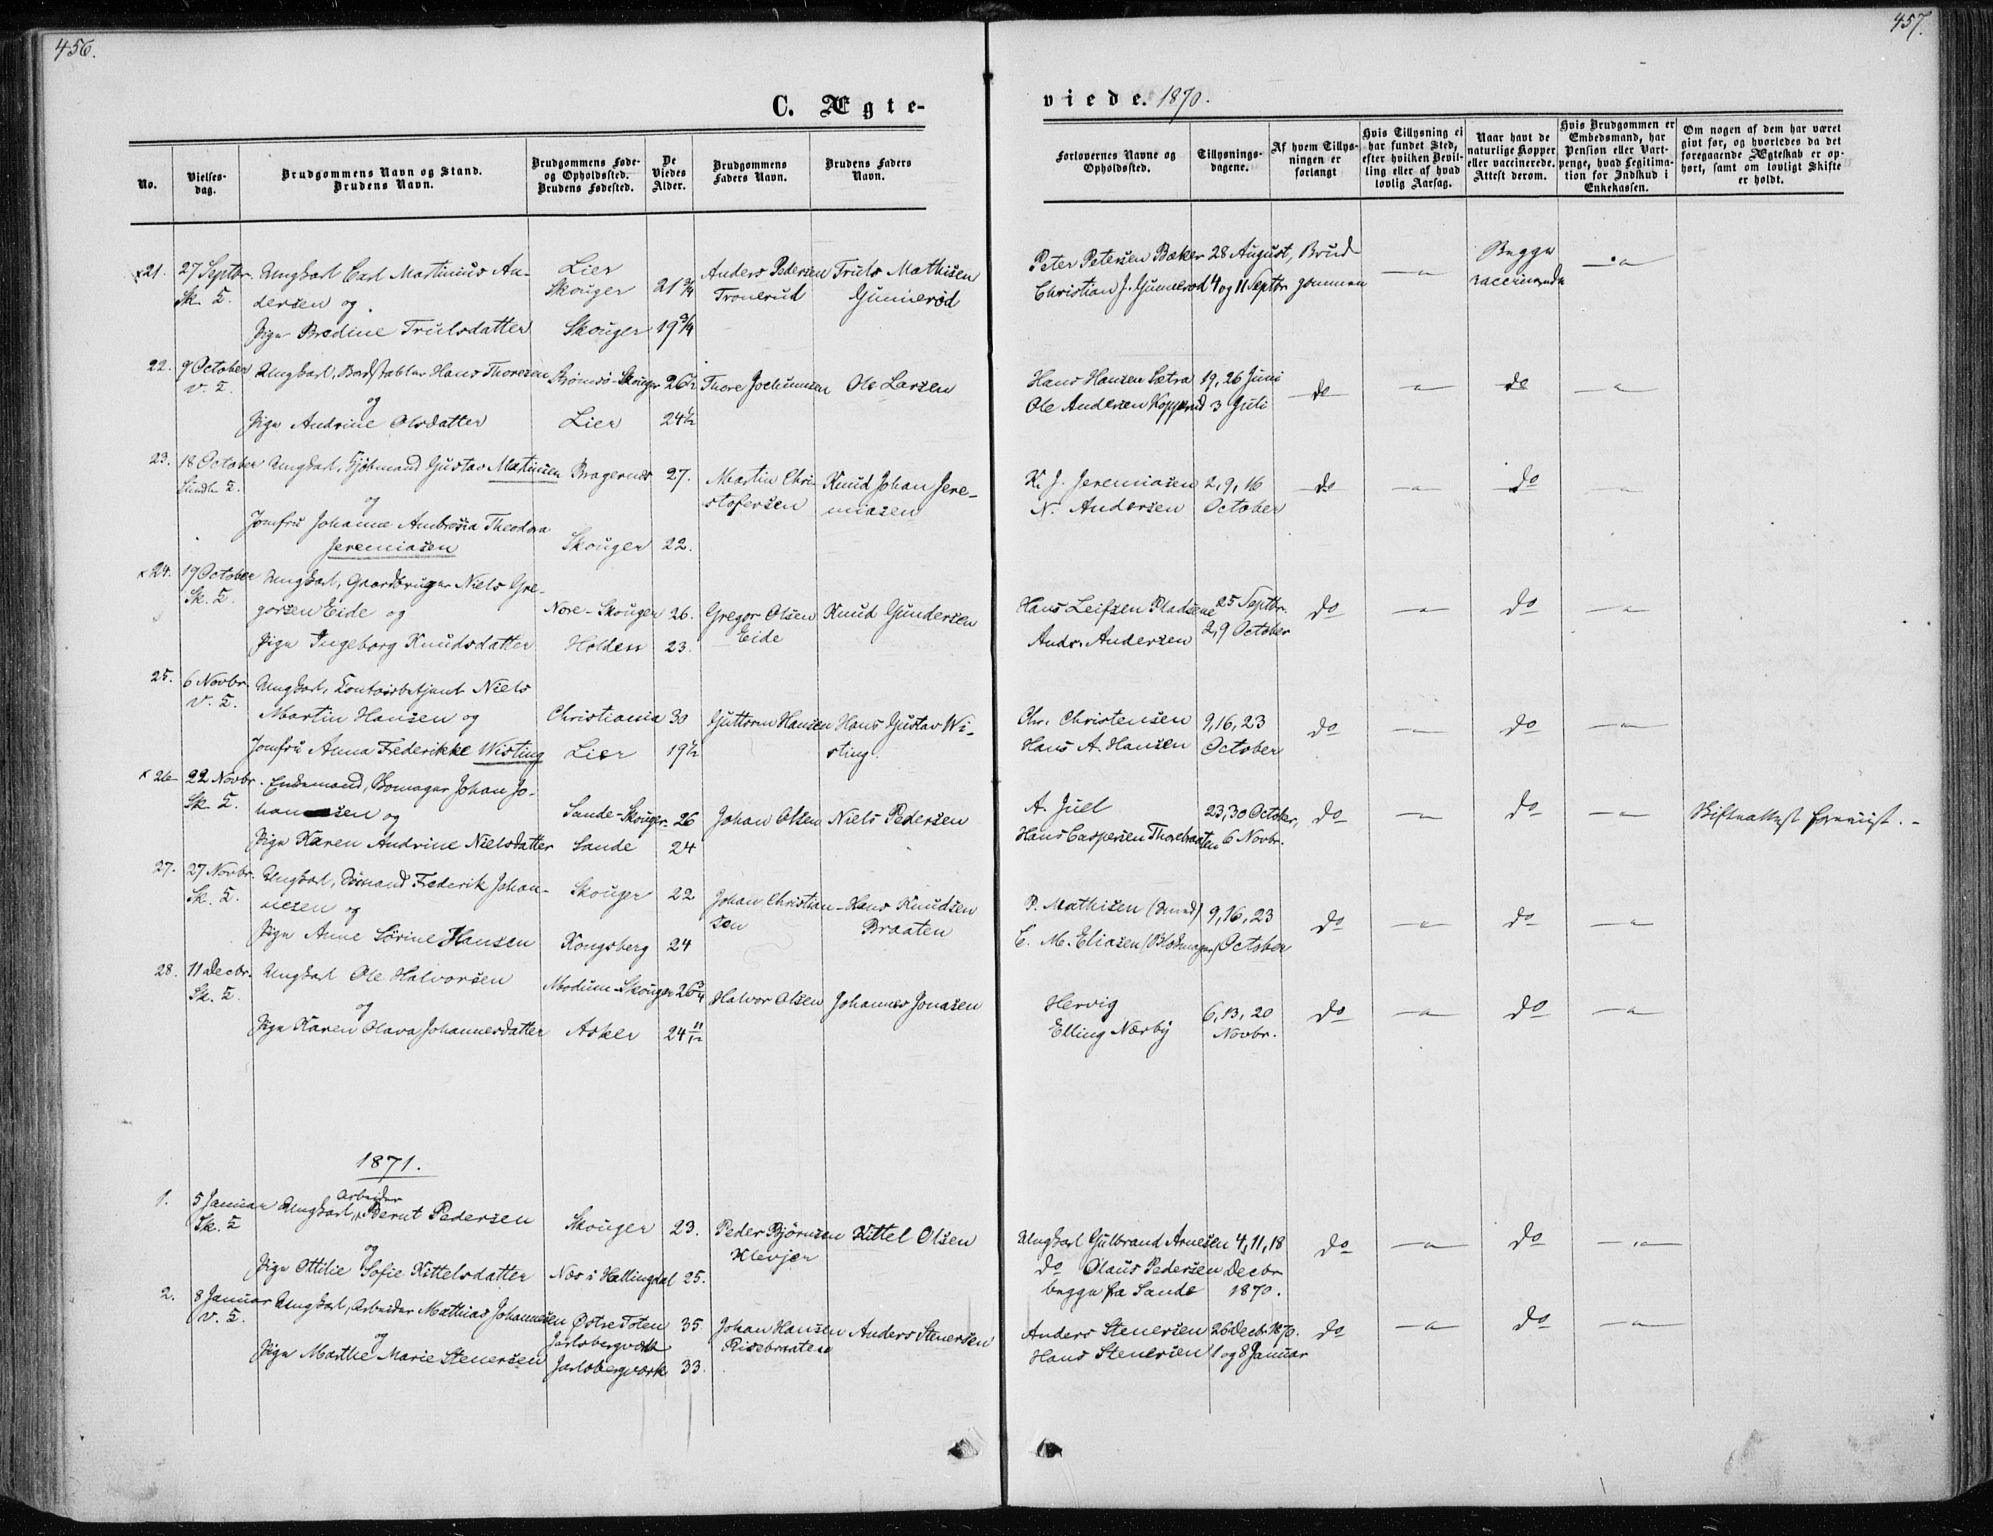 456.
C. Ægte-
No.
Vielses-
dag.
Brudgommens Navn og Stand.
Brudens Navn.
Brudgommens Føde-
og Opholdssted.
Brudens Fødested.
De
Viedes
Alder.
Brudgommens
Faders Navn.
Brudens Faders
Navn.
x21. 27 Septbr. Ungkarl Carl Martinius An- Lier 21 3/4 Anders Pedersen Truls Mathisen
Sk. K. dersen og Skouger Tronerud Gunnerød
Pige Bredine Trulsdatter Skouger 19 3/4
22. 9 October Ungkarl, Hans Thoresen Strømsø-Skouger 26 1/2 Thore Jochumsen Ole Larsen
V. K. og
Pige Andrine Olsdatter Lier 24 1/2
23. 18 October Ungkarl, Kjøbmand Gustav Martinsen Bragernes 27. Martin Chri- Knud Johan Jere-
og stofersen miasen
Jomfru Johanne Ambrosia Theodora
Jeremiasen Skouger 22.
x 24. 19 October Ungkarl, Gaardbruger Niels Gre-
Sk. K. gorsen Eide og Nore-Skouger 26. Gregor Olsen Knud Gundersen
Pige Ingeborg Knudsdatter Holden 23. Eide
25. 6 Novbr. Ungkarl, Contoirbetjent Niels
V. K. Martin Hansen og Christiania 30 Guttorm Hansen Hans Gustav Wi-
Jomfru Anna Frederikke Wisting Lier 19 1/2 sting.
x 26. 22 Novbr. Enkemand, Johan Jo-
Sk. K. hansen og Sande-Skouger 26 Johan Olsen Niels Pedersen
Pige Karen Andrine Nielsdatter Sande 24
27. 27 Novbr. Ungkarl, Sømand Frederik Johan- Skouger 22 Johan Christian- Hans Knudsen
Sk. K. nesen og sen Braaten
Pige Anne Sørine Hansen Kongsberg 24
28. 11 Decbr. Ungkarl Ole Halvorsen Modum-Skouger 26 3/4 Halvor Olsen Johannes Jonasen
Sk. K. og
Pige Karen Olava Johannesdatter Asker 24 11/12
1871.
Arbeider
1. 5 Januar Ungkarl, Bernt Pedersen Skouger 23. Peder Bjørnsen Kittel Olsen
Sk. K. og Klevjer
Pige Ottilie Sofie Kittelsdatter Næs i Hallingdal 25.
2. 8 Januar Ungkarl, Arbeider Mathias Johannesen Østre Toten 35. Johan Hansen Anders Stenersen
V. K. og Jarlsbergværk Risebraaten
Pige Marthe Marie Stenersen Jarlsbergværk 33.
457.
viede. 1870.
Forlovernes Navne og
Opholdssted.
Tillysnings-
dagene.
Af hvem Tillys-
ningen er
forlangt
Hvis Tillysning ei
har fundet Sted,
efter hvilken Bevil-
ling eller af hvad
lovlig Aarsag.
Naar havt de
naturlige Kopper
eller vaccinerede.
Attest derom.
Hvis Brudgommen er
Embedsmand, har
Pension eller Vart-
penge, hvad Legitima-
tion for Indskud i
Enkekassen.
Om nogen af dem har været
givt før, og hvorledes da det
foregaaende Ægteskab er op-
hørt, samt om lovligt Skifte
er holdt.
Peter Petersen Bæker 28 August, Brud- Begge
Christian J. Gunnerød 4 og 11 Septbr. gommen — vaccinerede —
Hans Hansen Sætra 19, 26 Juni
Ole Andersen Kopperud 3 Juli do — do —
K. J. Jeremiasen 2, 9, 16 do — do —
N. Andersen October
Hans Leifsen Pladsene 25 Septbr. do — do —
Andr. Andersen 2, 9 October
Chr. Christensen 9, 16, 23 do — do —
Hans A. Hansen October
A. Juel 23, 30 October, do — do — Skifteattest foreviist. -
Hans Caspersen Thorebraaten 6 Novbr.
P. Mathisen (Smed) 9, 16, 23 do — do —
C. M. Eliasen (Blokmager) October
Hervig 6, 13, 20 do — do —
Elling Nærby Novbr.
Ungkarl Gulbrand Arnesen 4, 11, 18 do — do —
do Olaus Pedersen Decbr
begge fra Sande 1870.
Anders Stenersen 26 Decbr 1870. do — do —
Hans Stenersen 1 og 8 Januar